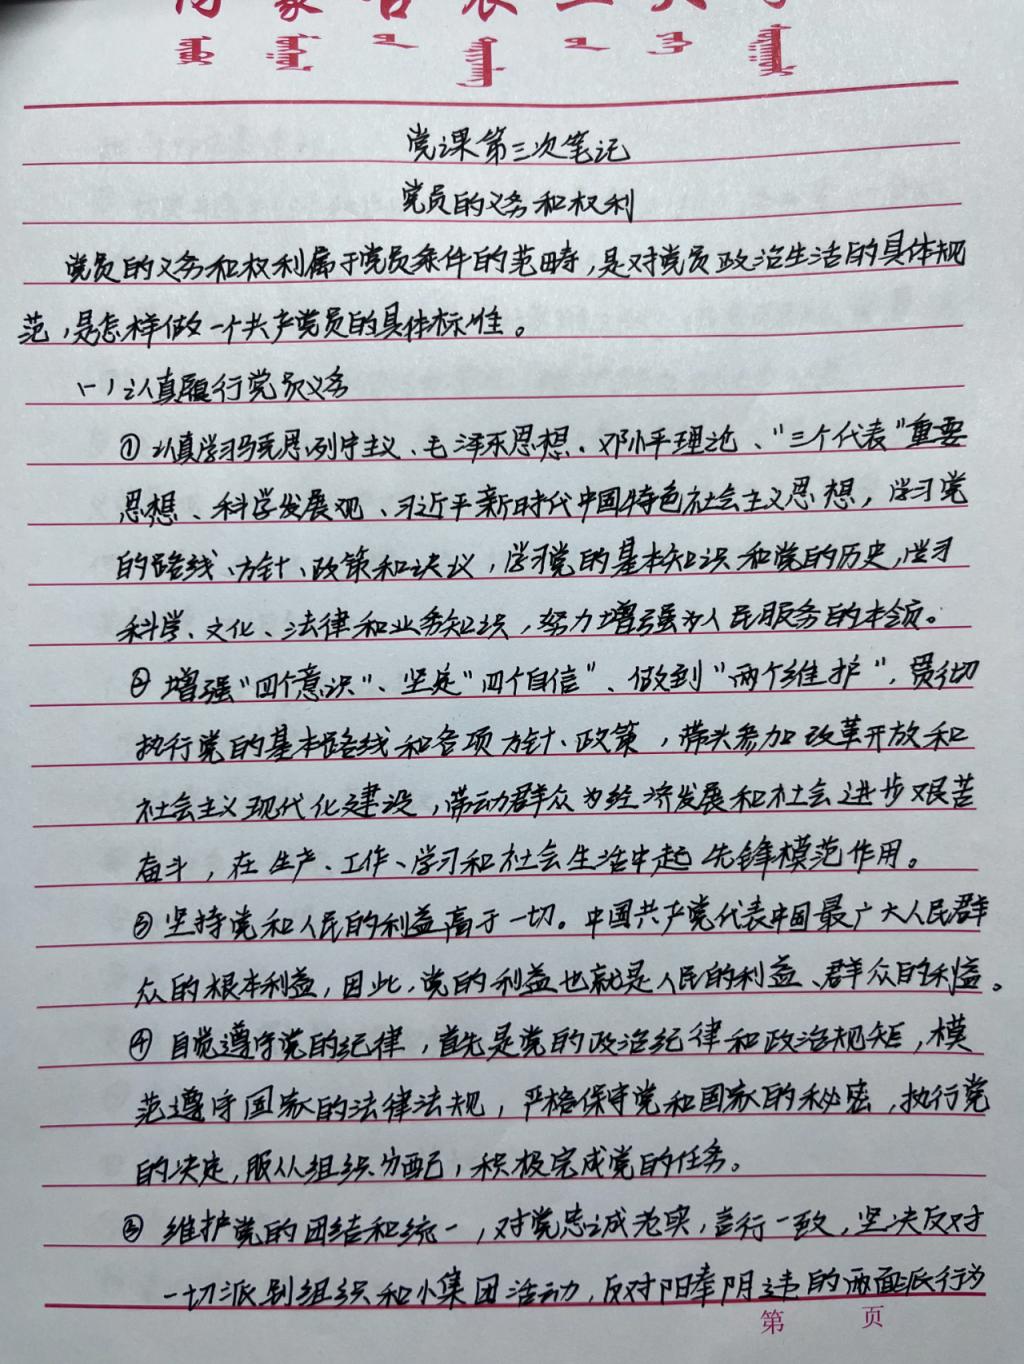 党课第三次笔记
党员的义务和权利
党员的义务和权利属于党员条件的范畴,是对党员政治生活的具体规
范,是怎样做一个共产党员的具体标准。
(一)认真履行党员义务
①认真学习马克思列宁主义、毛泽东思想、邓小平理论、"三个代表"重要
思想、科学发展观、习近平新时代中国特色社会主义思想,学习党
的路线、方针、政策和决议,学习党的基本知识和党的历史,学习
科学、文化、法律和业务知识,努力增强为人民服务的本领。
②增强"四个意识"、坚定"四个自信"、做到"两个维护",贯彻
执行党的基本路线和各项方针、政策,带头参加改革开放和
社会主义现代化建设,带动群众为经济发展和社会进步艰苦
奋斗,在生产、工作、学习和社会生活中起先锋模范作用。
③坚持党和人民的利益高于一切。中国共产党代表中国最广大人民群
众的根本利益,因此,党的利益也就是人民的利益、群众的利益。
④自觉遵守党的纪律,首先是党的政治纪律和政治规矩,模
范遵守国家的法律法规,严格保守党和国家的秘密,执行党
的决定,服从组织分配,积极完成党的任务。
⑤维护党的团结和统一,对党忠诚老实,言行一致,坚决反对
一切派别组织和小集团活动,反对阳奉阴违的两面派行为
第 页